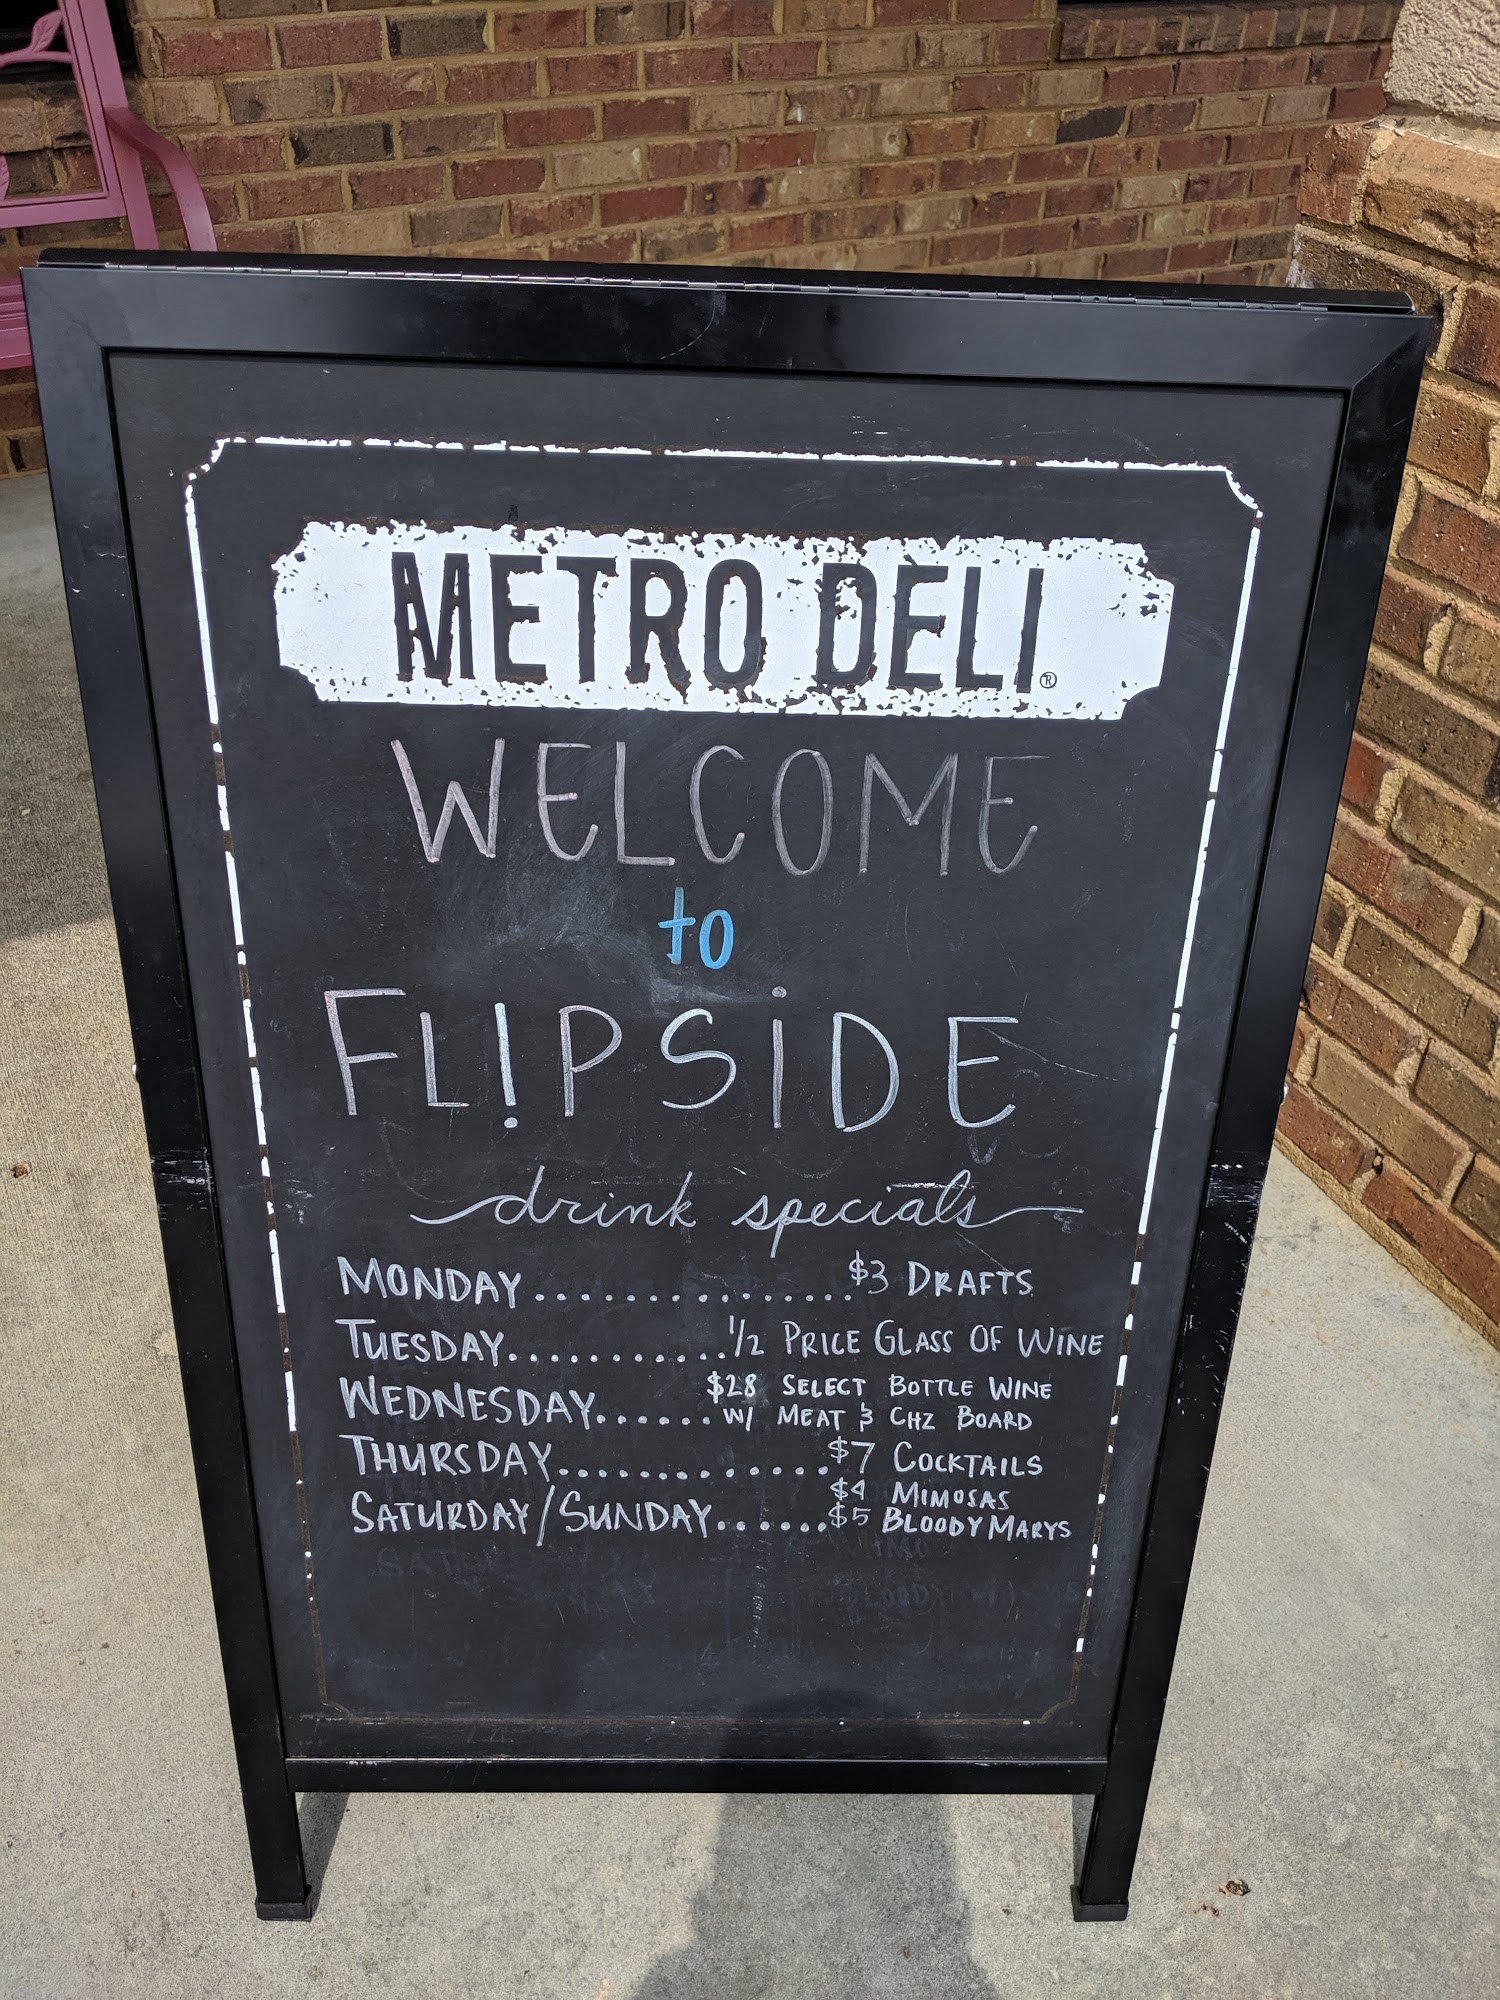 METRO DELI ®
WELCOME
to
FL!PSiDE
drink specials
MONDAY ............... $3 DRAFTS
TUESDAY............ 1/2 PRICE GLASS OF WINE
$28 SELECT BOTTLE WINE
WEDNESDAY...... W/ MEAT & CHZ BOARD
THURSDAY............. $7 COCKTAILS
$4 MIMOSAS
SATURDAY/SUNDAY...... $5 BLOODY MARYS